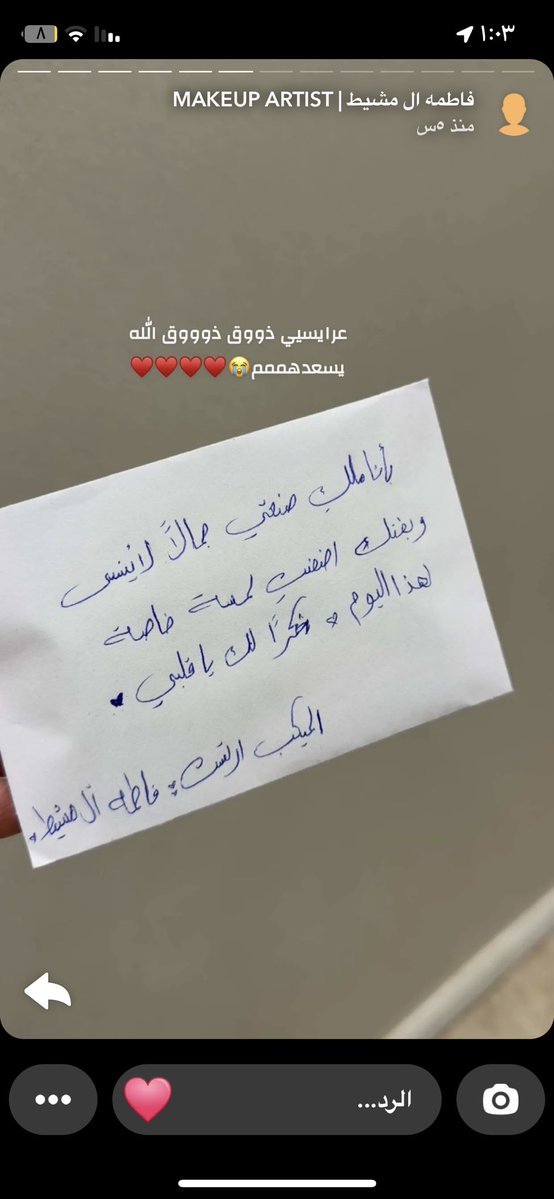 ١:٠٣
٨
فاطمه ال مشيط | MAKEUP ARTIST
منذ ٥س
عرايسيي ذووق ذوووق الله
يسعدهممم😭♥️♥️♥️♥️
بأناملكِ صنعتي جمالاً لاينسى
وبفنك اضفتي لمسة خاصة
لهذا اليوم ، شكراً لك ياقلبي .
الميكب ارتست ، فاطمه آل مشيط ،
الرد...